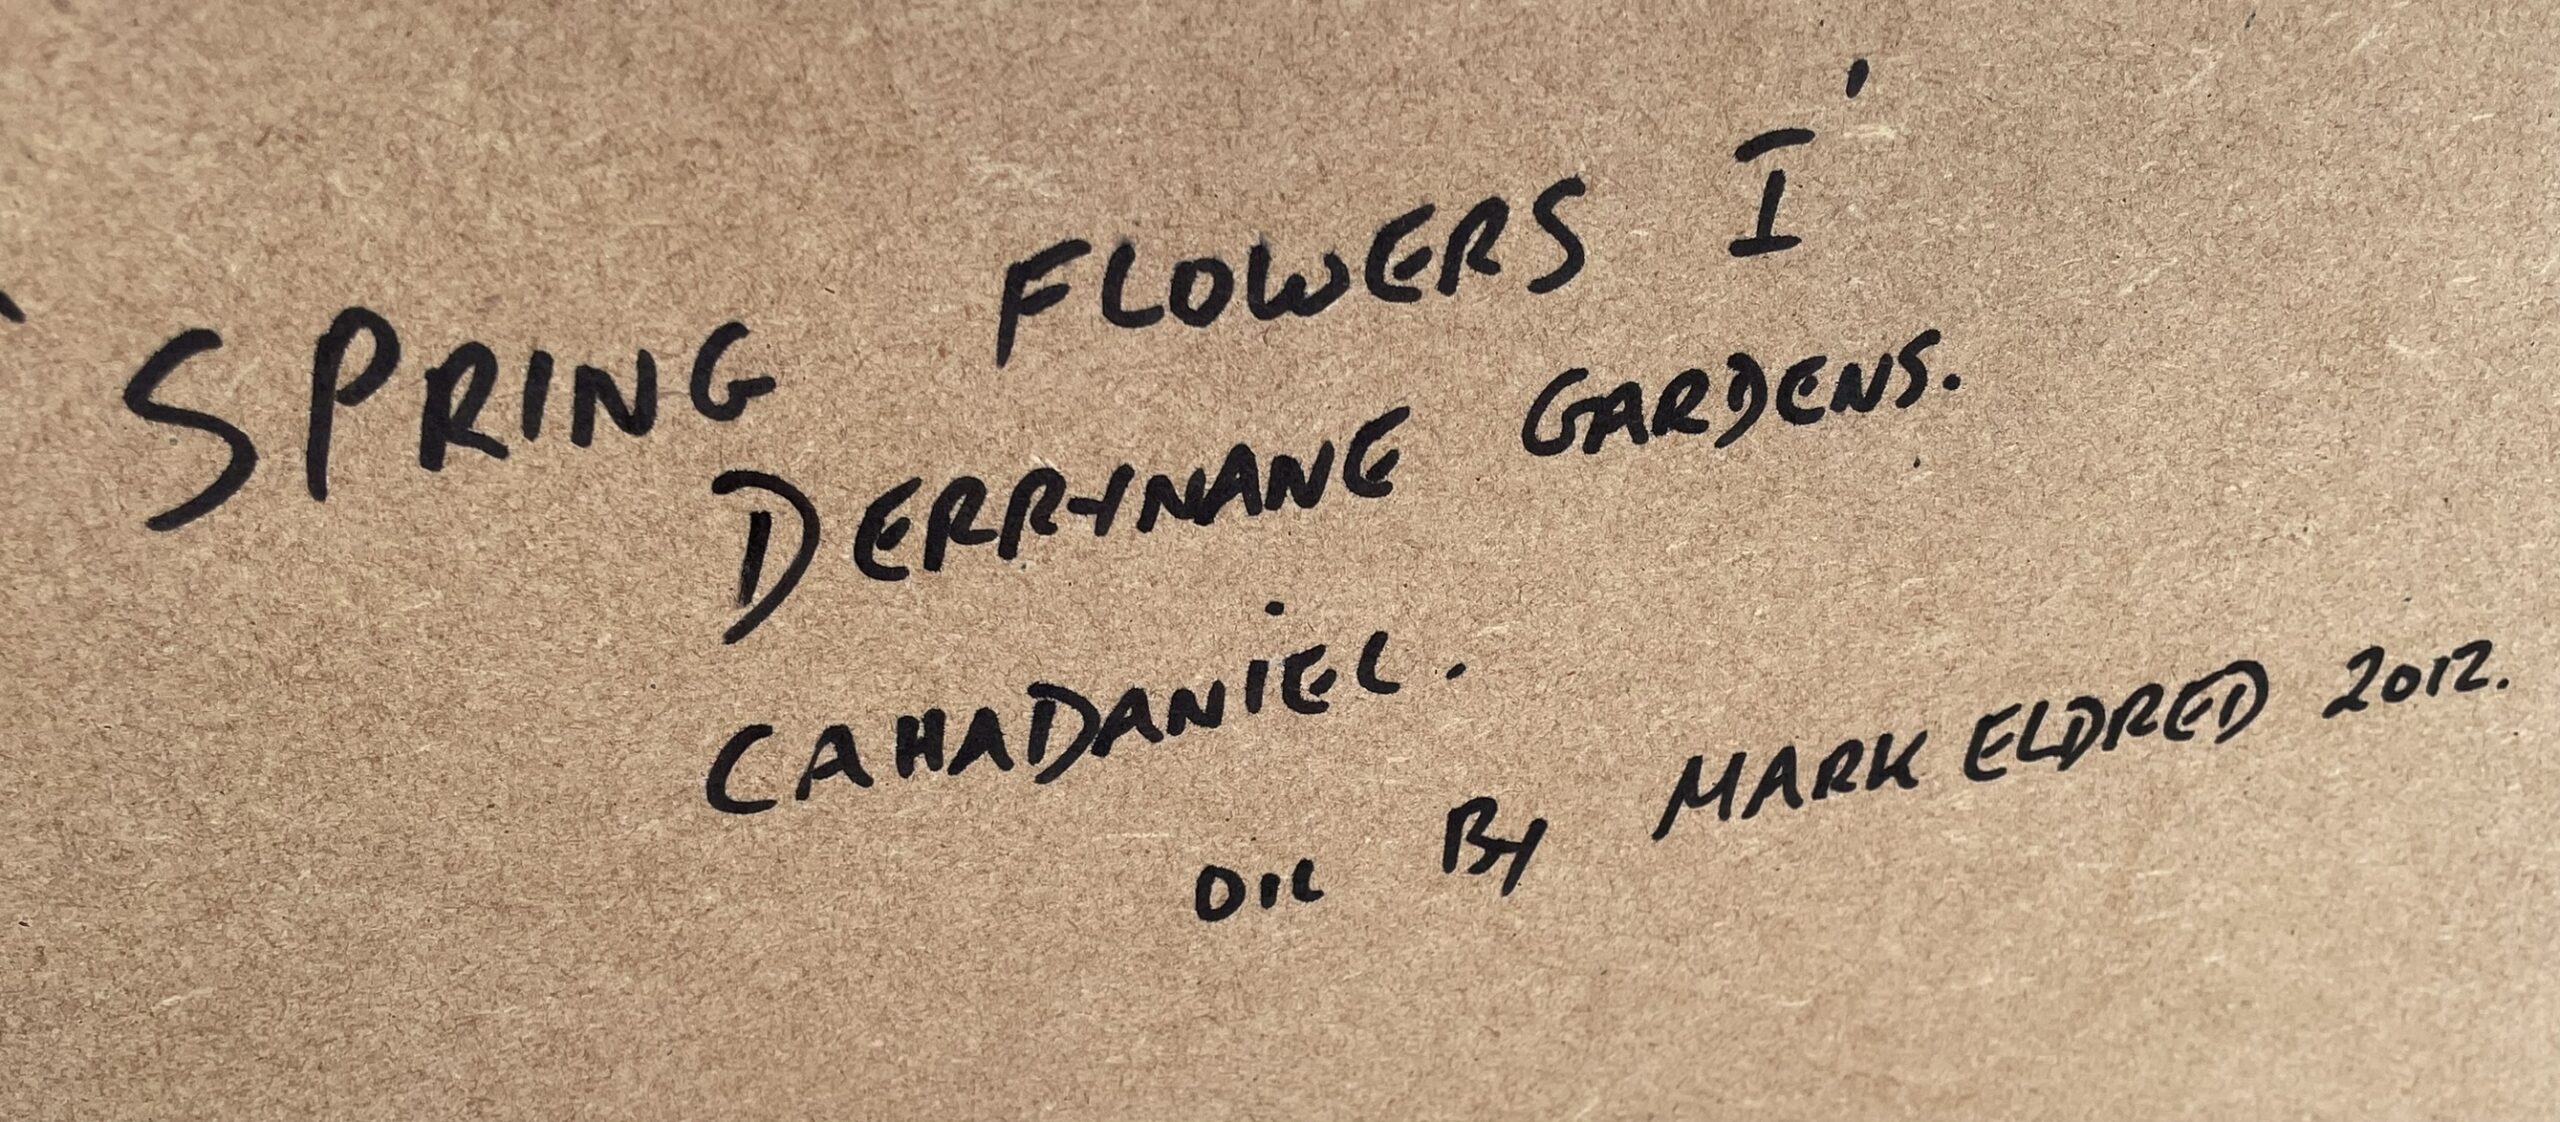 'SPRING FLOWERS I'
DERRYNANE GARDENS.
CAHADANIEL.
OIL By MARK ELDRED 2012.